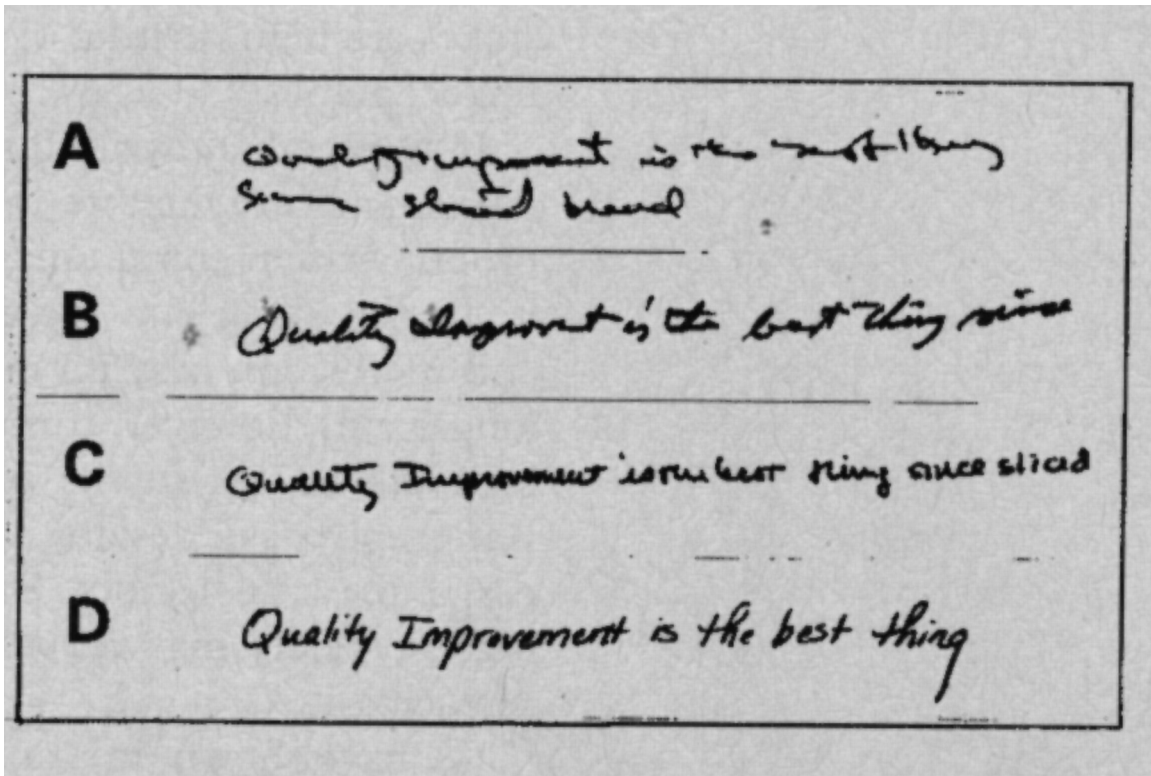 A Quality improvement is the best thing
since sliced bread
B Quality Improvent is the best thing since
C Quality Improvement is the best thing since sliced
D Quality Improvement is the best thing